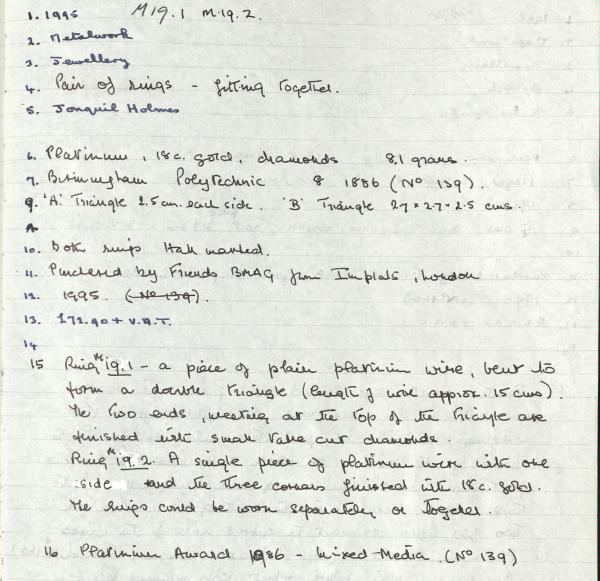 M19.1 M.19.2.
1. 1995
2. Metalwork
3. Jewellery
4. Pair of rings - fitting together.
5. Jonquil Holmes
6. Platinum, 18c. gold, diamonds 8.1 grams.
7. Birmingham Polytechnic 8 1886 (No 139).
9. 'A' Triangle 2.5 cm. each side. 'B' Triangle 2.7 x 2.7 x 2.5 cms.
10. Both rings Hall marked.
11. Purchased by Friends BMAG from , London
12. 1995. (No 139).
13. £172.90 + V.A.T.
14
15 Ring M19.1 - a piece of plain platinum wire, bent to
form a double triangle (length of wire approx. 15 cms).
The two ends, meeting at the top of the triangle are
finished with small cut diamonds.
Ring M19.2. A single piece of platinum wire with one
side and the three corners finished with 18c. gold.
The rings could be worn separately or together.
16 Platinium Award 1986 - Mixed-Media. (No 139)